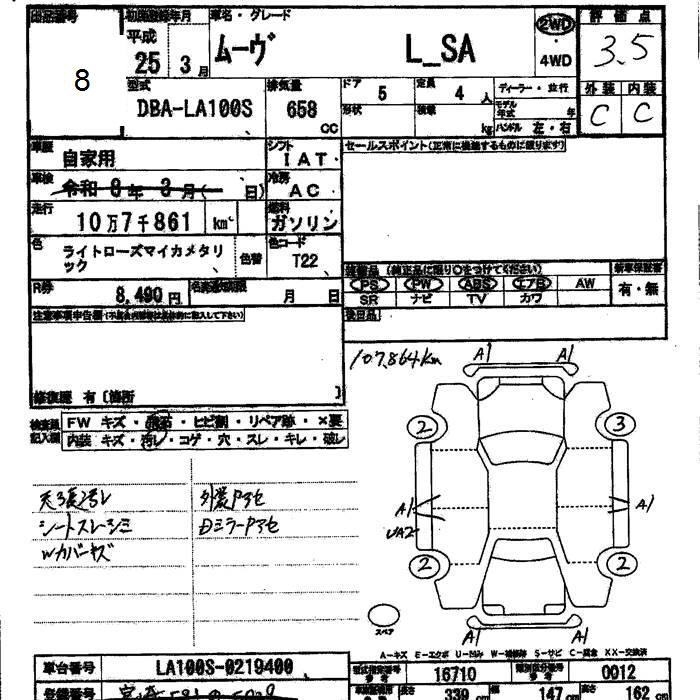 初度登録年月
車名・グレード
評価点
8
平成
25 3月
ムーヴ L_SA
2WD
・
4WD
3.5
型式
DBA-LA100S
排気量
658 cc
ドア 5
定員 4 人
形状
積載 kg
ディーラー・並行
モデル年式 年
ハンドル 左・右
外装 内装
C C
車歴
自家用
シフト
IAT
セールスポイント(正常に機能するものに限ります)
車検
令和 8年 3月( 日)
冷房
AC
走行
10万7千861 km
燃料
ガソリン
色
ライトローズマイカメタリック
色替
色コード
T22
装備品(純正品に限り○をつけてください)
新車保証書
PS PW ABS エアB AW
有・無
SR ナビ TV カワ
R券
8,490円
月 日
後日品
注意事項申告欄
修復歴 有〔箇所 〕
検査員記入欄
FW キズ・飛石・ヒビ割・リペア跡・×要
内装 キズ・汚レ・コゲ・穴・スレ・キレ・破レ
107,864km
A1 A1
2 3
A1 A1
UA2
2 2
A1 A1
シートスレ・シミ
Wカバーキズ
スペア
A-キズ E-エクボ U-凹み W-補修跡 S-サビ C-腐食 XX-交換済
車台番号
LA100S-0219400
型式指定番号
16710
類別区分番号
0012
登録番号
長さ 339 cm
幅 147 cm
高さ 162 cm